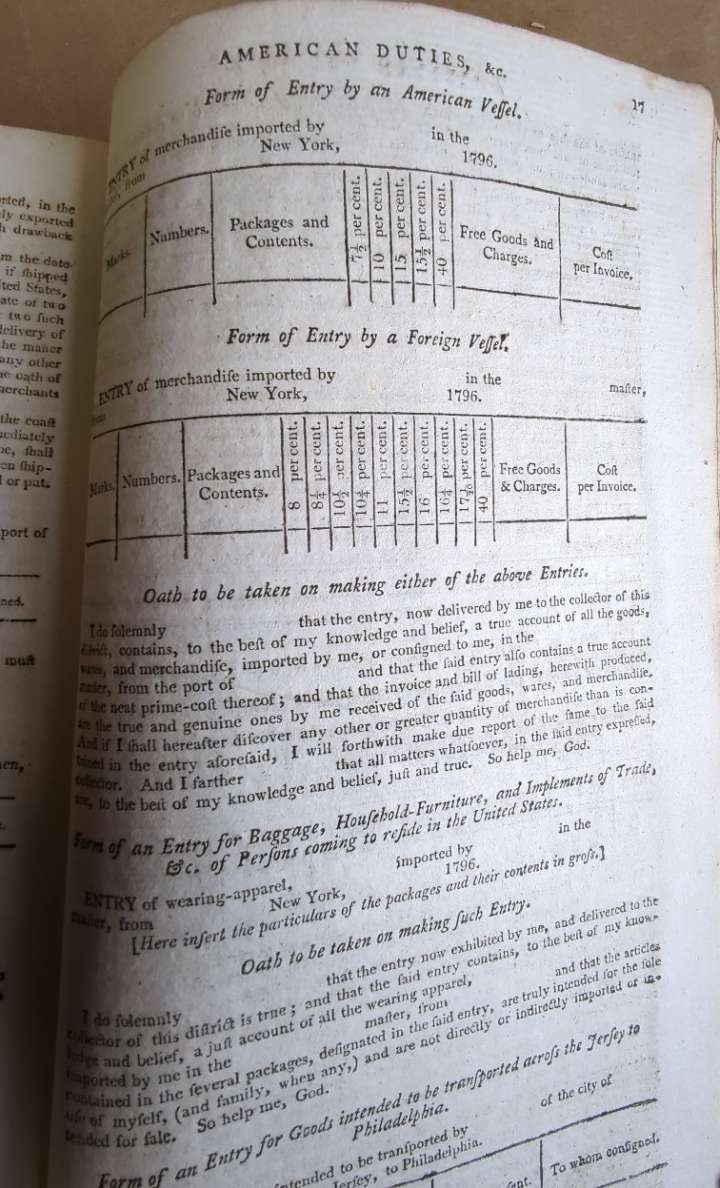 AMERICAN DUTIES, &c.
17
Form of Entry by an American Veſſel.
ENTRY of merchandiſe imported by in the
from New York, 1796.
Marks.
Numbers.
Packages and
Contents.
7½ per cent.
10 per cent.
15 per cent.
15½ per cent.
40 per cent.
Free Goods and
Charges.
Coſt
per Invoice.
Form of Entry by a Foreign Veſſel.
ENTRY of merchandiſe imported by in the maſter,
from New York, 1796.
Marks.
Numbers.
Packages and
Contents.
8 per cent.
8¼ per cent.
10½ per cent.
10¼ per cent.
11 per cent.
15½ per cent.
16 per cent.
16¼ per cent.
per cent.
40 per cent.
Free Goods
& Charges.
Coſt
per Invoice.
Oath to be taken on making either of the above Entries.
I do ſolemnly that the entry, now delivered by me to the collector of this
diſtrict, contains, to the beſt of my knowledge and belief, a true account of all the goods,
wares, and merchandiſe, imported by me, or conſigned to me, in the
maſter, from the port of and that the ſaid entry alſo contains a true account
of the neat prime-coſt thereof; and that the invoice and bill of lading, herewith produced,
are the true and genuine ones by me received of the ſaid goods, wares, and merchandiſe.
And if I ſhall hereafter diſcover any other or greater quantity of merchandiſe than is con-
tained in the entry aforeſaid, I will forthwith make due report of the ſame to the ſaid
collector. And I farther that all matters whatſoever, in the ſaid entry expreſſed,
are, to the beſt of my knowledge and belief, juſt and true. So help me, God.
Form of an Entry for Baggage, Houſehold-Furniture, and Implements of Trade,
&c. of Perſons coming to reſide in the United States.
ENTRY of wearing-apparel, imported by in the
maſter, from New York, 1796.
[Here inſert the particulars of the packages and their contents in groſs.]
Oath to be taken on making ſuch Entry.
I do ſolemnly that the entry now exhibited by me, and delivered to the
collector of this diſtrict is true; and that the ſaid entry contains, to the beſt of my know-
ledge and belief, a juſt account of all the wearing apparel,
imported by me in the maſter, from and that the articles
contained in the ſeveral packages, deſignated in the ſaid entry, are truly intended for the ſole
uſe of myſelf, (and family, when any,) and are not directly or indirectly imported or in-
tended for ſale. So help me, God.
Form of an Entry for Goods intended to be tranſported acroſs the Jerſey to
Philadelphia.
intended to be tranſported by of the city of
Jerſey, to Philadelphia.
To whom conſigned.
orted, in the
ly exported
h drawback
m the date
if ſhipped
ted States,
ate of two
two ſuch
delivery of
he maſter
any other
oath of
merchants
the coaſt
mediately
ſhall
en ſhip-
or put.
port of
ned.
muſt